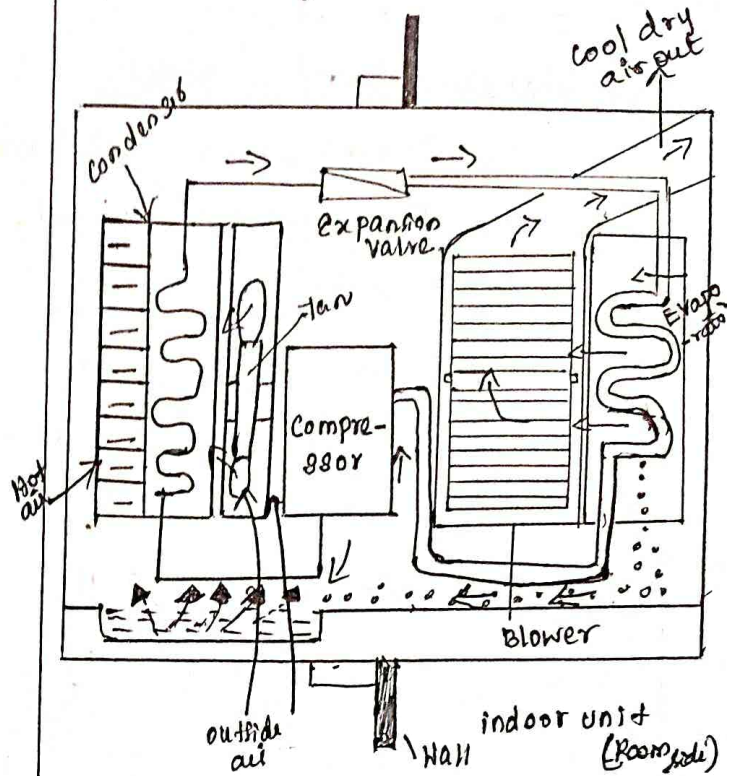 Cool dry
air out
Condensor
Expansion
Valve
Evapo
-rator
fan
Compre-
ssor
Hot
air
Blower
outside
air
Wall
indoor unit
(Room side)